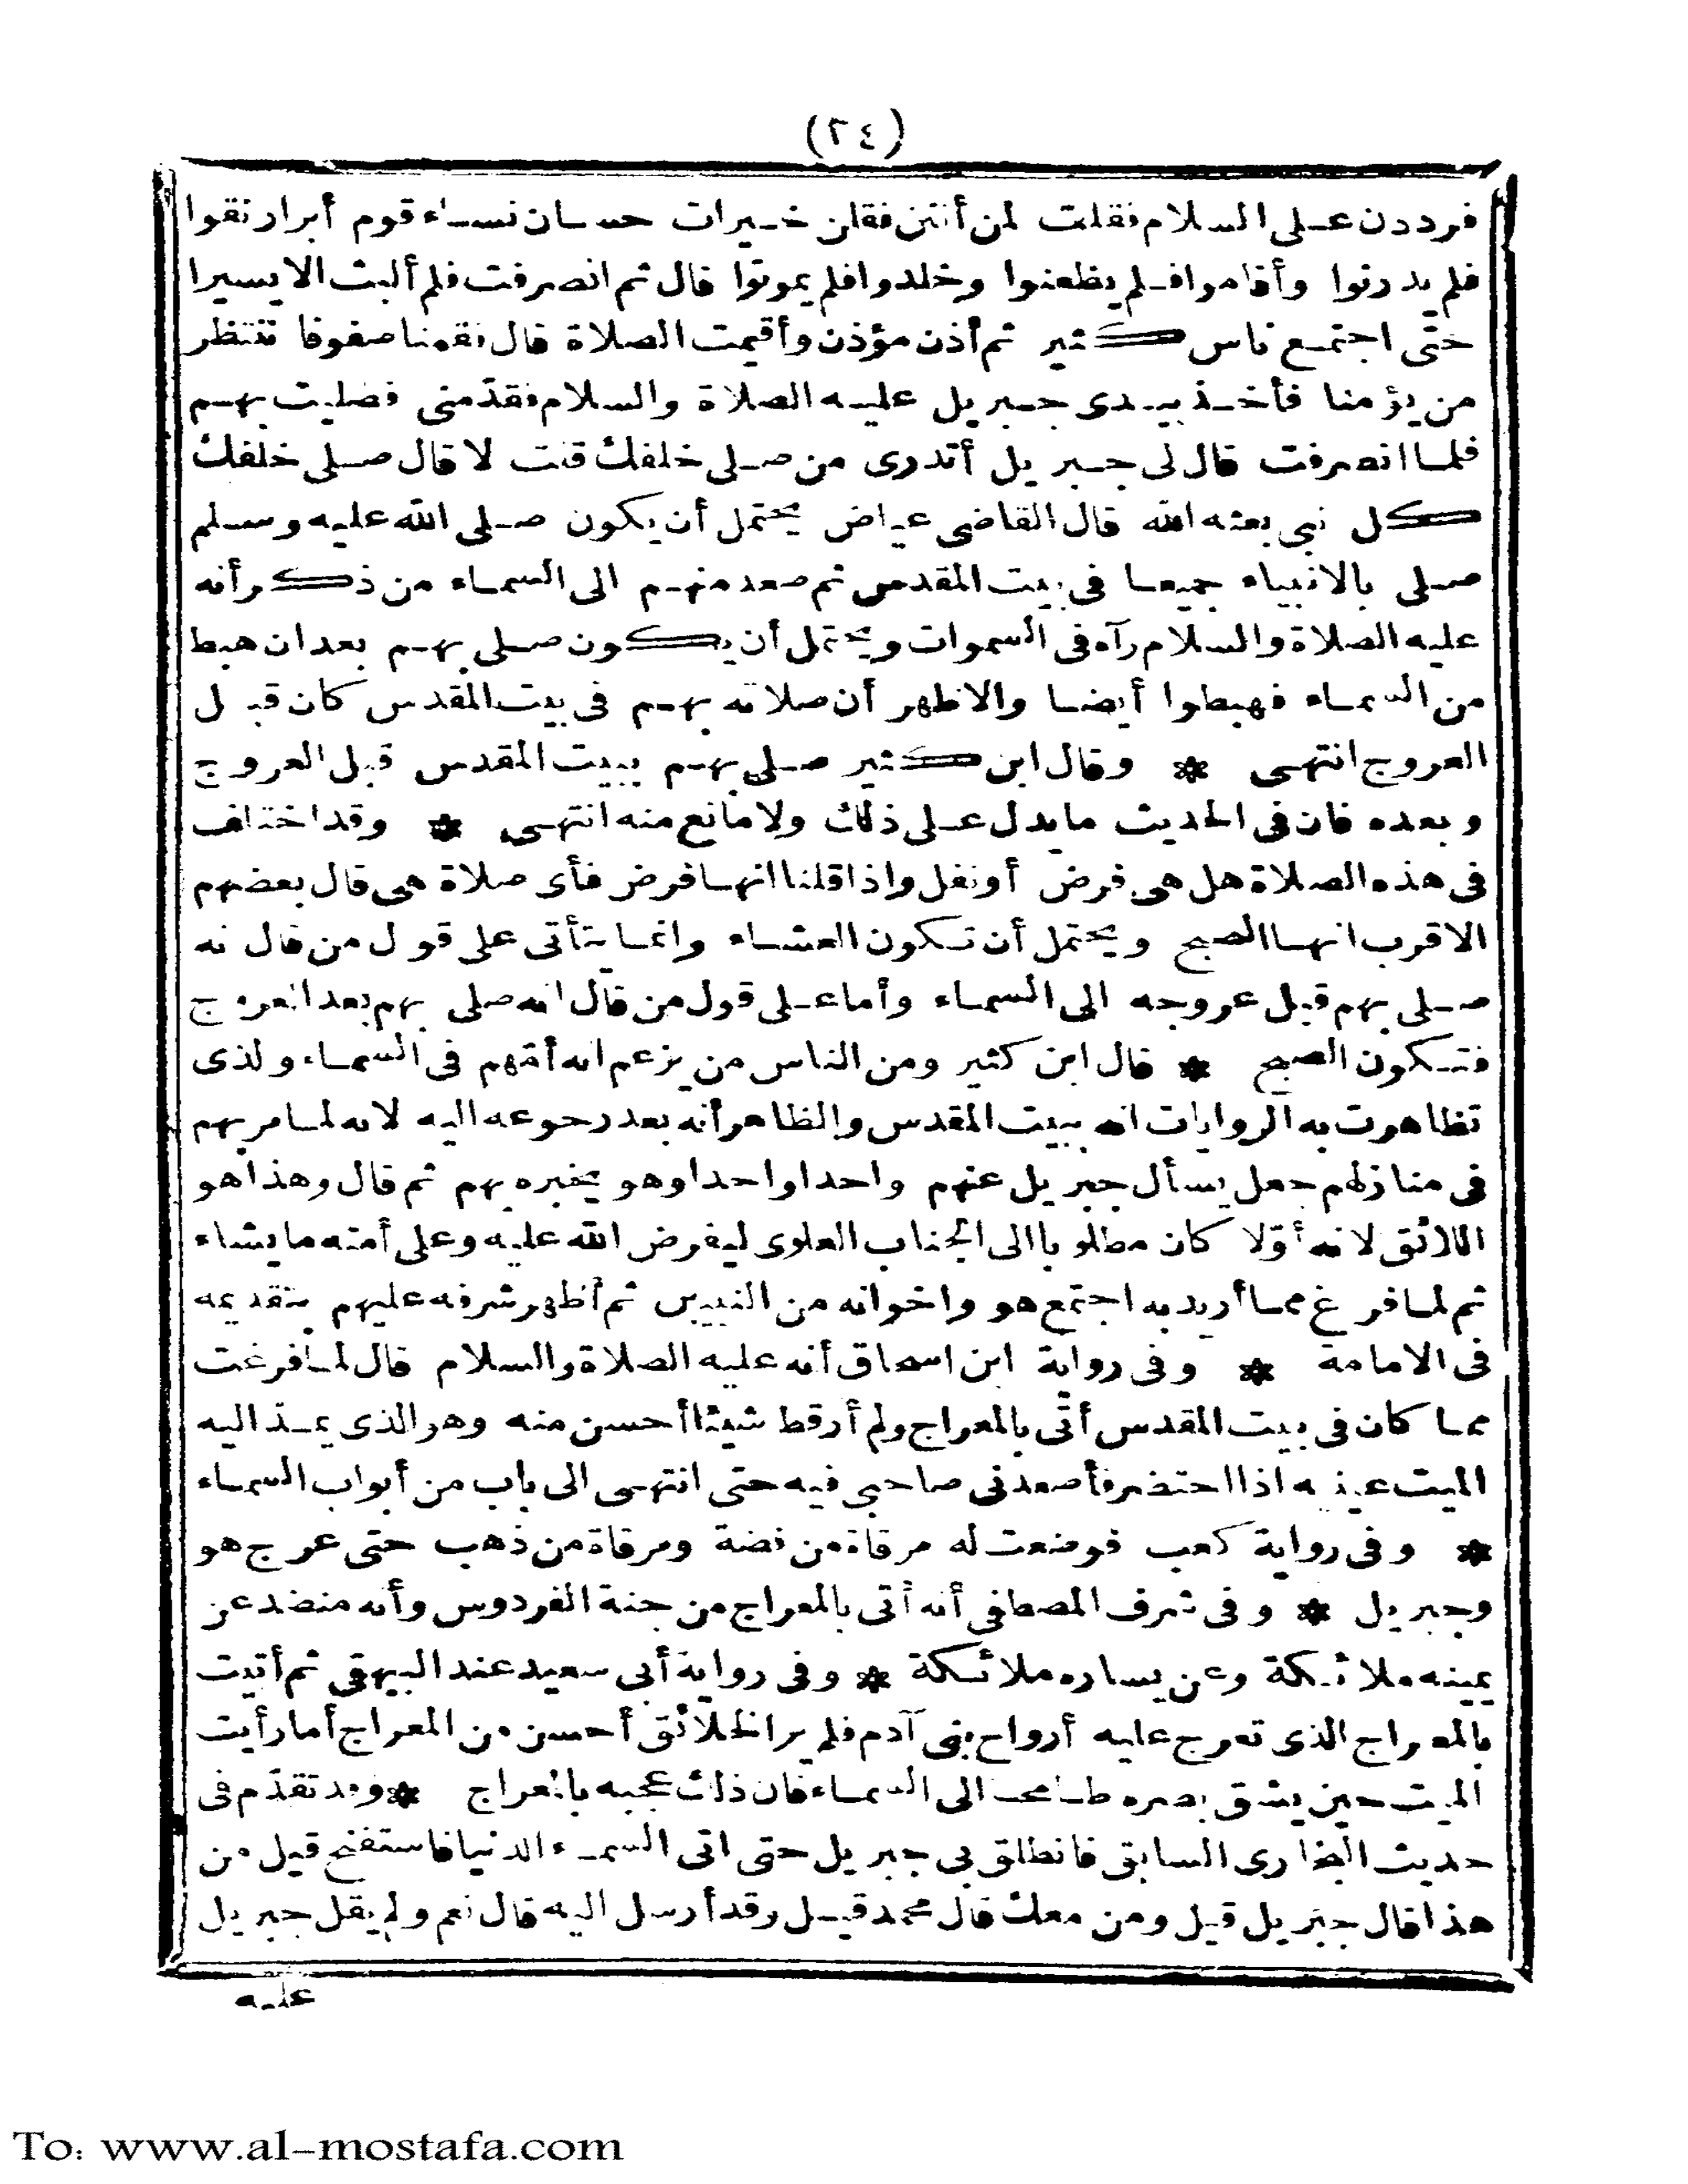 (٢٤)
فرددن على السلام فقلت لمن أنتن فقلن خيرات حسان نساء قوم أبرار نقوا
فلم يدرنوا وأقاموا فلم يظعنوا وخلدوا فلم يموتوا قال ثم انصرفت فلم ألبث الا يسيرا
حتى اجتمع ناس كثير ثم أذن مؤذن وأقيمت الصلاة قال فقمنا صفوفا ننتظر
من يؤمنا فأخذ بيدى جبريل عليه الصلاة والسلام فقدّمنى فصليت بهم
فلما انصرفت قال لى جبريل أتدرى من صلى خلفك قلت لا قال صلى خلفك
كل نبى بعثه الله قال القاضى عياض يحتمل أن يكون صلى الله عليه وسلم
صلى بالانبياء جميعا فى بيت المقدس ثم صعد منهم الى السماء من ذكر أنه
عليه الصلاة والسلام رآه فى السموات ويحتمل أن يكون صلى بهم بعد ان هبط
من السماء فهبطوا أيضا والاظهر أن صلاته بهم فى بيت المقدس كان قبل
العروج انتهى * وقال ابن كثير صلى بهم ببيت المقدس قبل العروج
وبعده فان فى الحديث ما يدل على ذلك ولا مانع منه انتهى * وقد اختلف
فى هذه الصلاة هل هى فرض أو نفل واذا قلنا انها فرض فأى صلاة هى قال بعضهم
الاقرب انها الصبح ويحتمل أن تكون العشاء وانما يتأتى على قول من قال نه
صلى بهم قبل عروجه الى السماء وأما على قول من قال انه صلى بهم بعد العروج
فتكون الصبح * قال ابن كثير ومن الناس من يزعم انه أمّهم فى السماء ولذى
تظاهرت به الروايات انه ببيت المقدس والظاهر أنه بعد رجوعه اليه لانه لما مر بهم
فى منازلهم جعل يسأل جبريل عنهم واحدا واحدا وهو يخبره بهم ثم قال وهذا هو
اللائق لانه أوّلا كان مطلوبا الى الجناب العلوى ليفرض الله عليه وعلى أمته ما يشاء
ثم لما فرغ مما أريد به اجتمع هو واخوانه من النبيين ثم أظهر شرفه عليهم بتقديمه
فى الامامة * وفى رواية ابن اسحاق أنه عليه الصلاة والسلام قال لما فرغت
مما كان فى بيت المقدس أتى بالمعراج ولم أر قط شيئا أحسن منه وهو الذى يمدّ اليه
الميت عينيه اذا احتضر فأصعدنى صاحبى فيه حتى انتهى الى باب من أبواب السماء
* وفى رواية كعب فوضعت له مرقاة من فضة ومرقاة من ذهب حتى عرج هو
وجبريل * وفى شرف المصطفى أنه أتى بالمعراج من جنة الفردوس وأنه منضد عن
يمينه ملائكة وعن يساره ملائكة * وفى رواية أبى سعيد عند البيهقى ثم أتيت
بالمعراج الذى تعرج عليه أرواح بنى آدم فلم ير الخلائق أحسن من المعراج أما رأيت
الميت حين يشق بصره طامحا الى السماء فان ذلك عجبه بالمعراج * وقد تقدّم فى
حديث البخارى السابق فانطلق بى جبريل حتى اتى السماء الدنيا فاستفتح قيل من
هذا قال جبريل قيل ومن معك قال محمد قيل وقد أرسل اليه قال نعم ولم يقل جبريل
عليه
To: www.al-mostafa.com